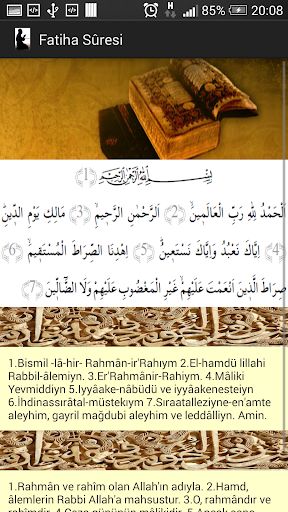 85% 20:08
Fatiha Sûresi
بِسْمِ اللّٰهِ الرَّحْمٰنِ الرَّحِيمِ ﴿1﴾
اَلْحَمْدُ لِلّٰهِ رَبِّ الْعَالَمِينَ ﴿2﴾ اَلرَّحْمٰنِ الرَّحِيمِ ﴿3﴾ مَالِكِ يَوْمِ الدِّينِ
﴿4﴾ اِيَّاكَ نَعْبُدُ وَاِيَّاكَ نَسْتَعِينُ ﴿5﴾ اِهْدِنَا الصِّرَاطَ الْمُسْتَقِيمَ ﴿6﴾
صِرَاطَ الَّذِينَ اَنْعَمْتَ عَلَيْهِمْ غَيْرِ الْمَغْضُوبِ عَلَيْهِمْ وَلَا الضَّالِّينَ ﴿7﴾
1.Bismil -lâ-hir- Rahmân-ir'Rahıym 2.El-hamdü lillahi
Rabbil-âlemiyn. 3.Er'Rahmânir-Rahiym. 4.Mâliki
Yevmiddiyn 5.Iyyâake-nâbüdü ve iyyâakenesteiyn
6.İhdinassırâtal-müstekıym 7.Sıraatalleziyne-en'amte
aleyhim, gayril mağdubi aleyhim ve leddâlliyn. Amin.
1.Rahmân ve rahîm olan Allah'ın adıyla. 2.Hamd,
âlemlerin Rabbi Allah'a mahsustur. 3.O, rahmândır ve
rahîmdir. 4.Ceza gününün mâlikidir. 5.Ancak sana